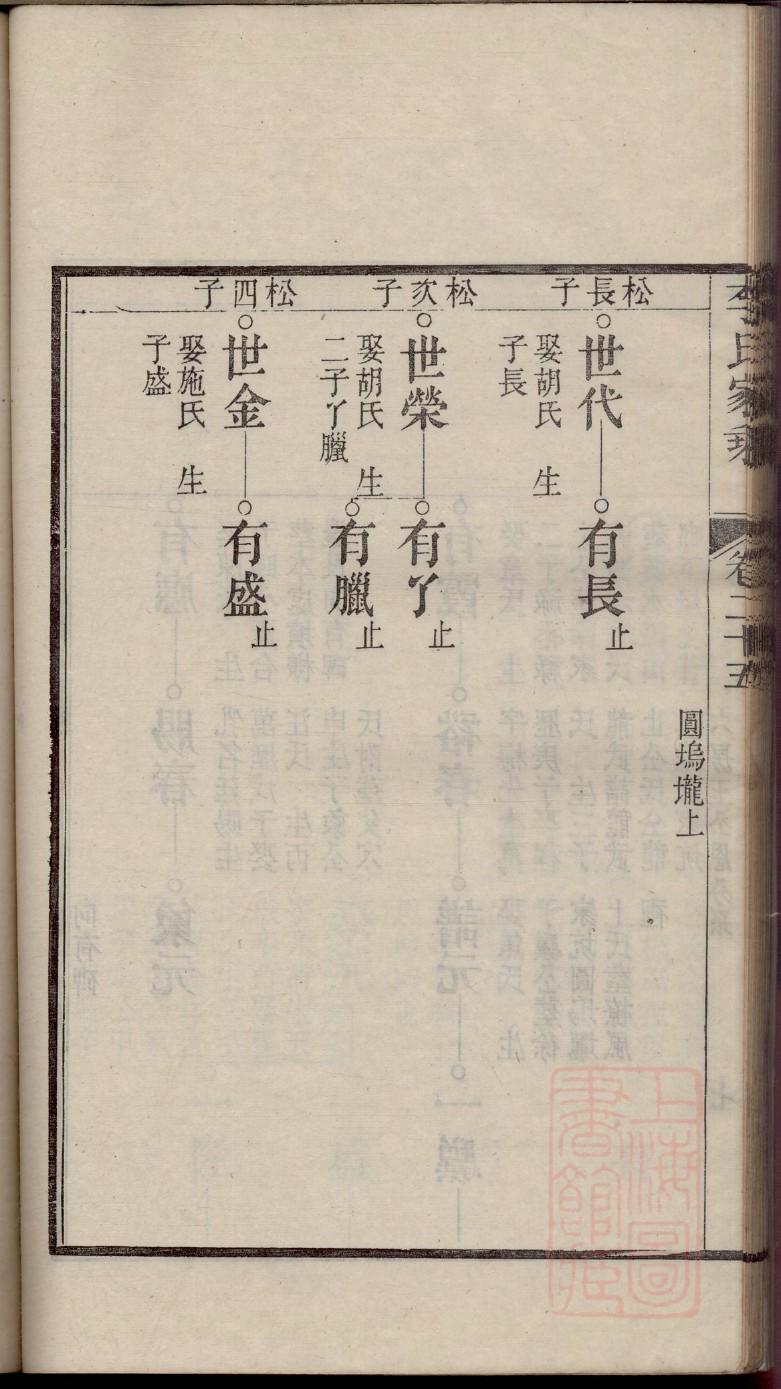 李氏家乘 卷二十五
圓塢壠上
松長子
世代
娶胡氏 生
子長
有長止
松次子
世榮
娶胡氏 生
二子丫臘
有丫止
有臘止
松四子
世金
娶施氏 生
子盛
有盛止
上海圖
書館藏